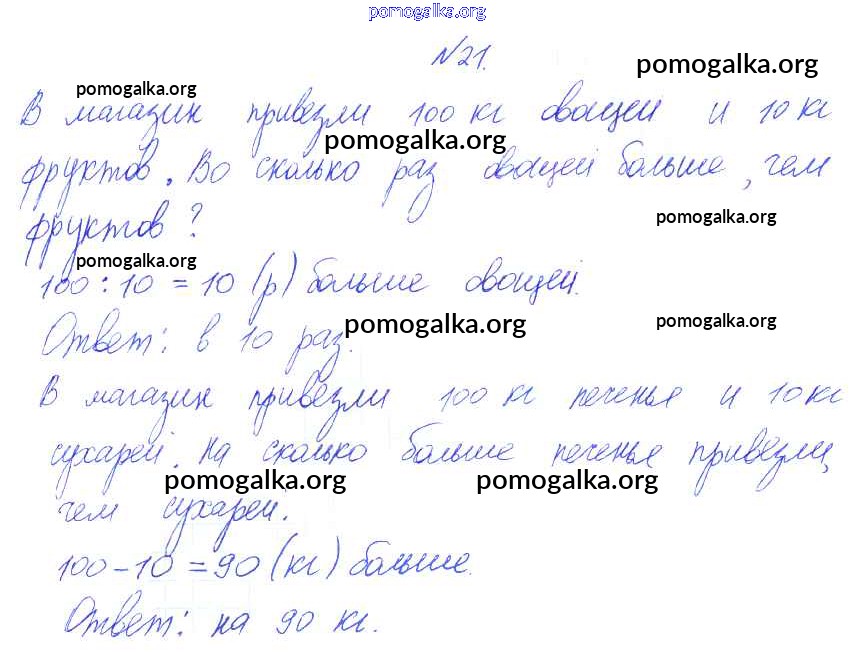 pomogalka.org
№21.
pomogalka.org
pomogalka.org
В магазин привезли 100 кг овощей и 10 кг
pomogalka.org
фруктов. Во сколько раз овощей больше, чем
pomogalka.org
фруктов?
pomogalka.org
100 : 10 = 10 (р) больше овощей.
pomogalka.org
pomogalka.org
Ответ: в 10 раз.
В магазин привезли 100 кг печенья и 10 кг
сухарей. На сколько больше печенье привезли,
pomogalka.org
pomogalka.org
чем сухарей.
100 – 10 = 90 (кг) больше.
Ответ: на 90 кг.